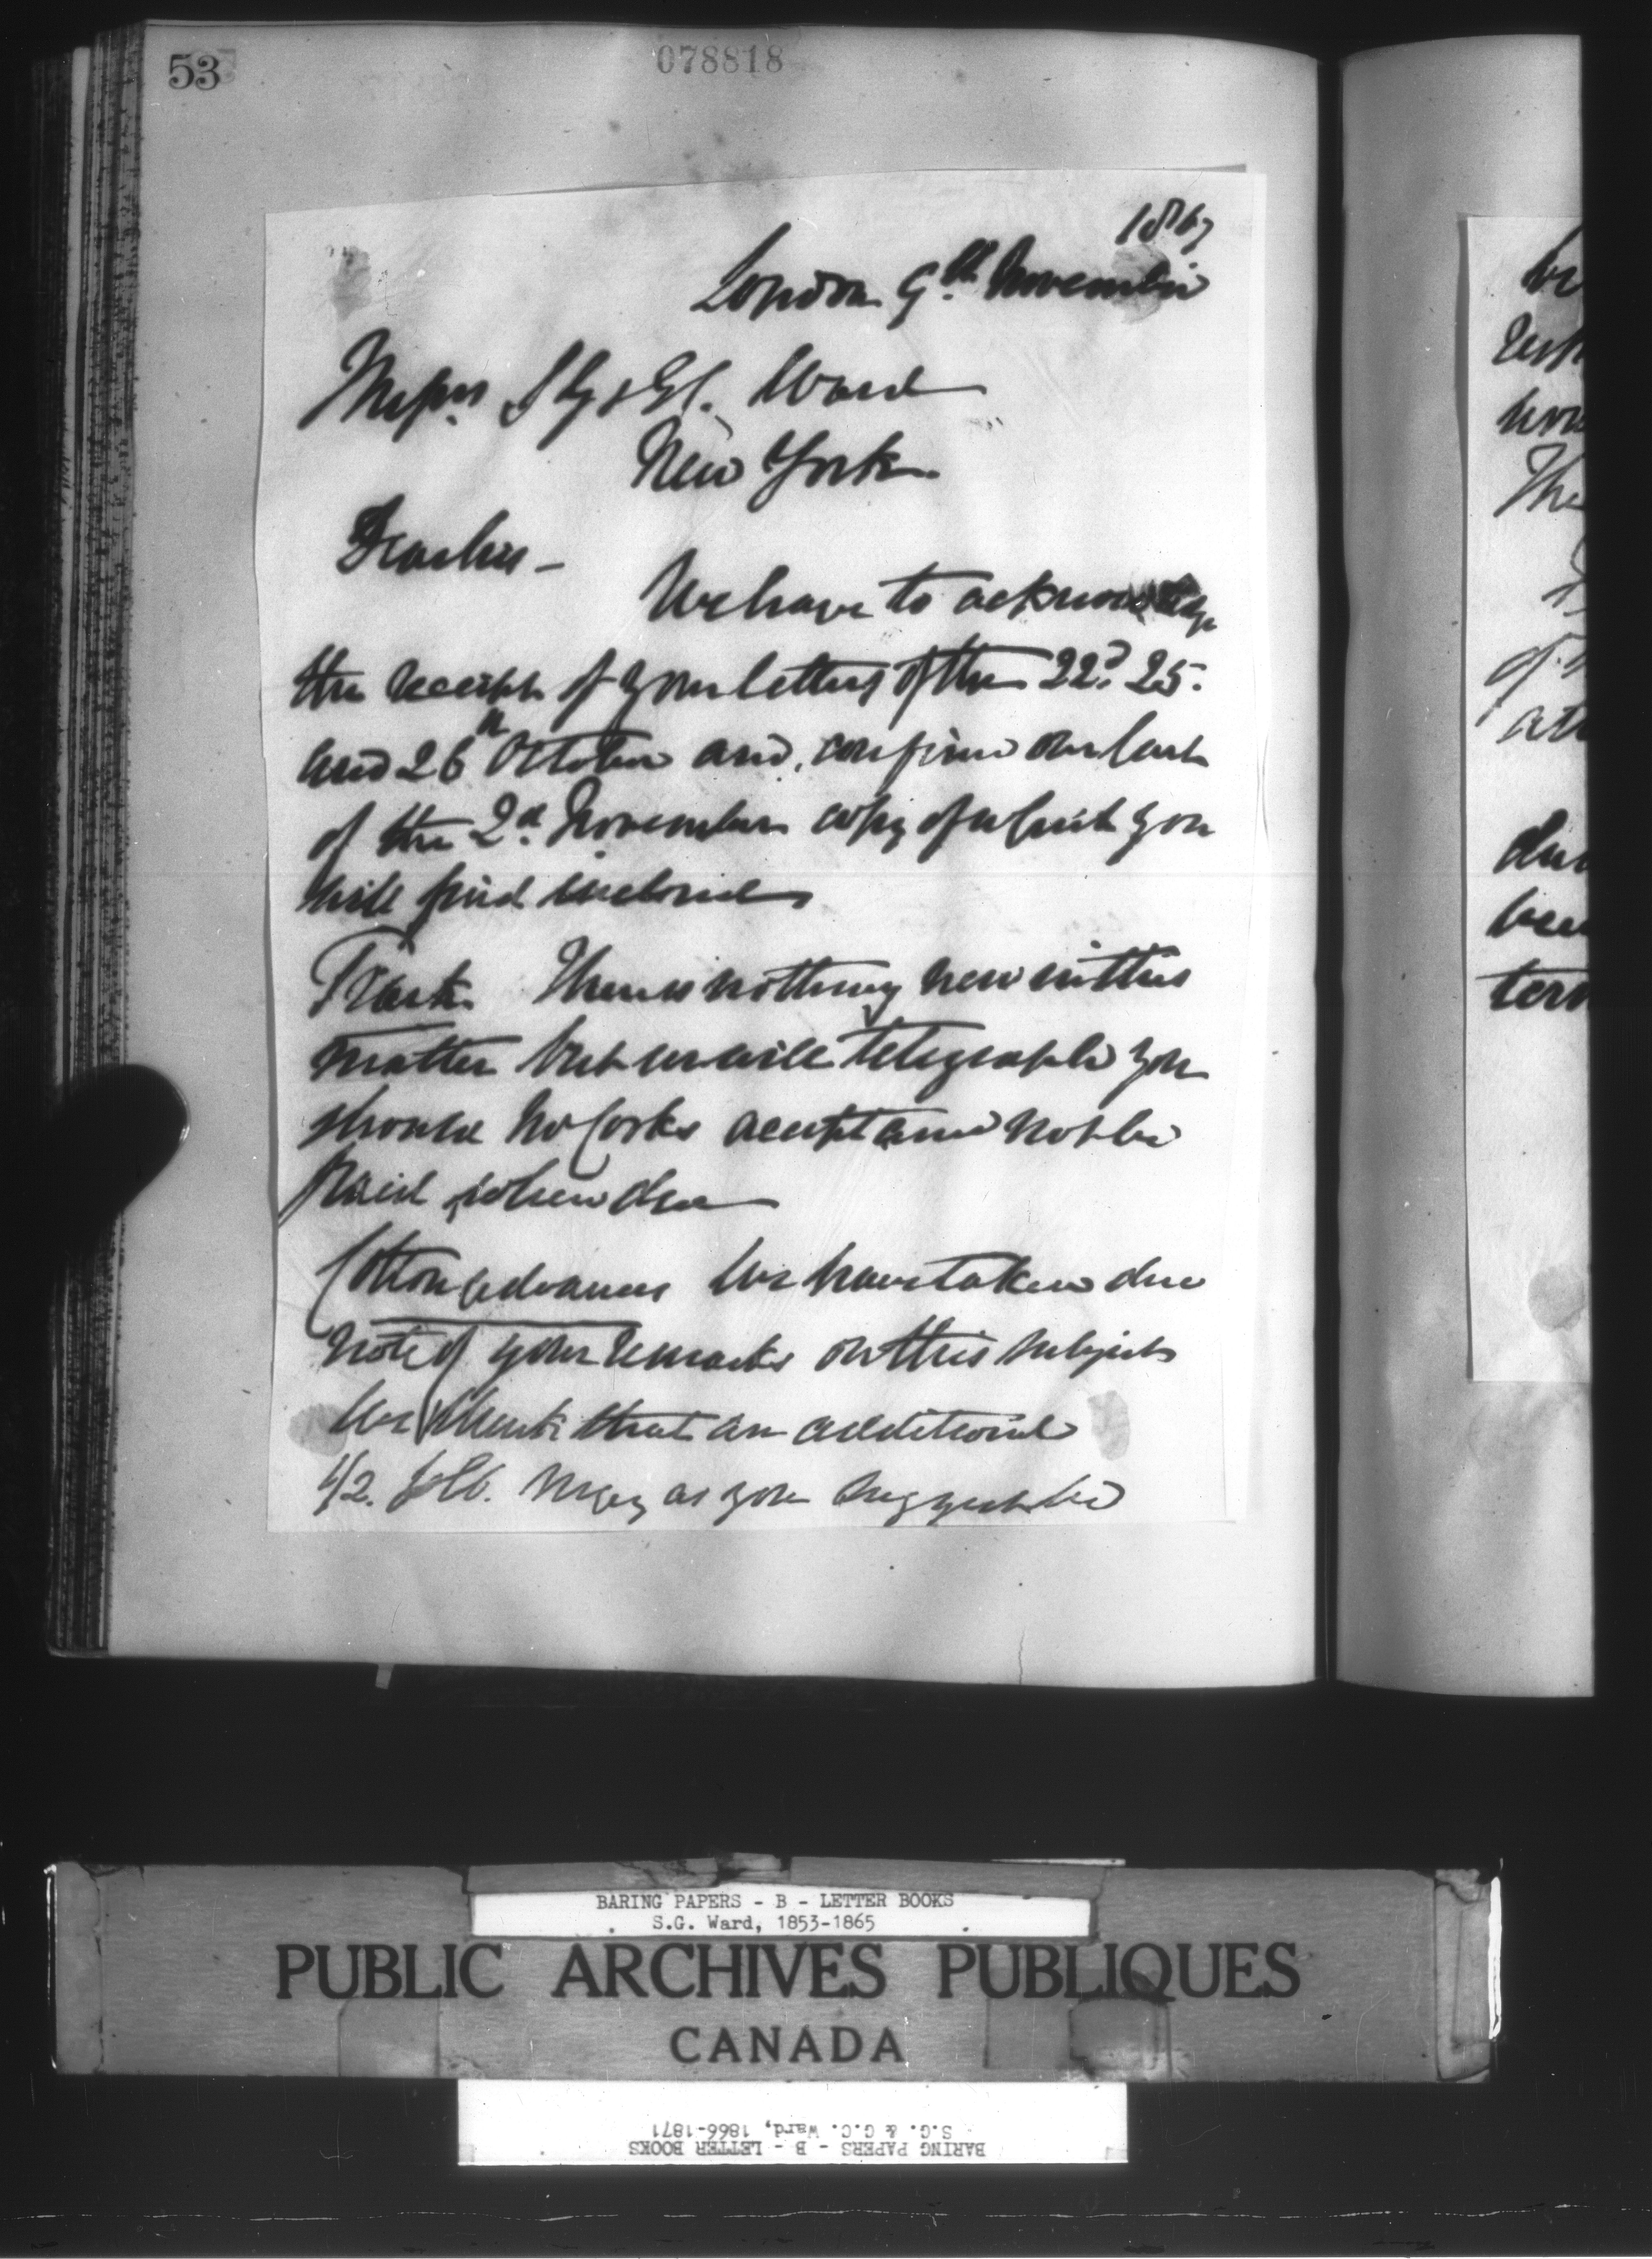 53
078818
1867
London 9th November
Messrs S G & G C. Ward
New York
Dear Sirs -
We have to acknowledge
the receipt of your letters of the 22d. 25.
and 26th October and confirm our last
of the 2d. November copy of which you
will find enclosed
There is nothing new in this
matter but we will telegraph you
should acceptance not be
paid when due
Cotton advances We have taken due
note of your remarks on this subject
We think that an additional
1/2. may as you suggest be
The
of
BARING PAPERS - B - LETTER BOOKS
S.G. Ward, 1853-1865
PUBLIC ARCHIVES PUBLIQUES
CANADA
BARING PAPERS - B - LETTER BOOKS
S.G. & G.C. Ward, 1866-1871